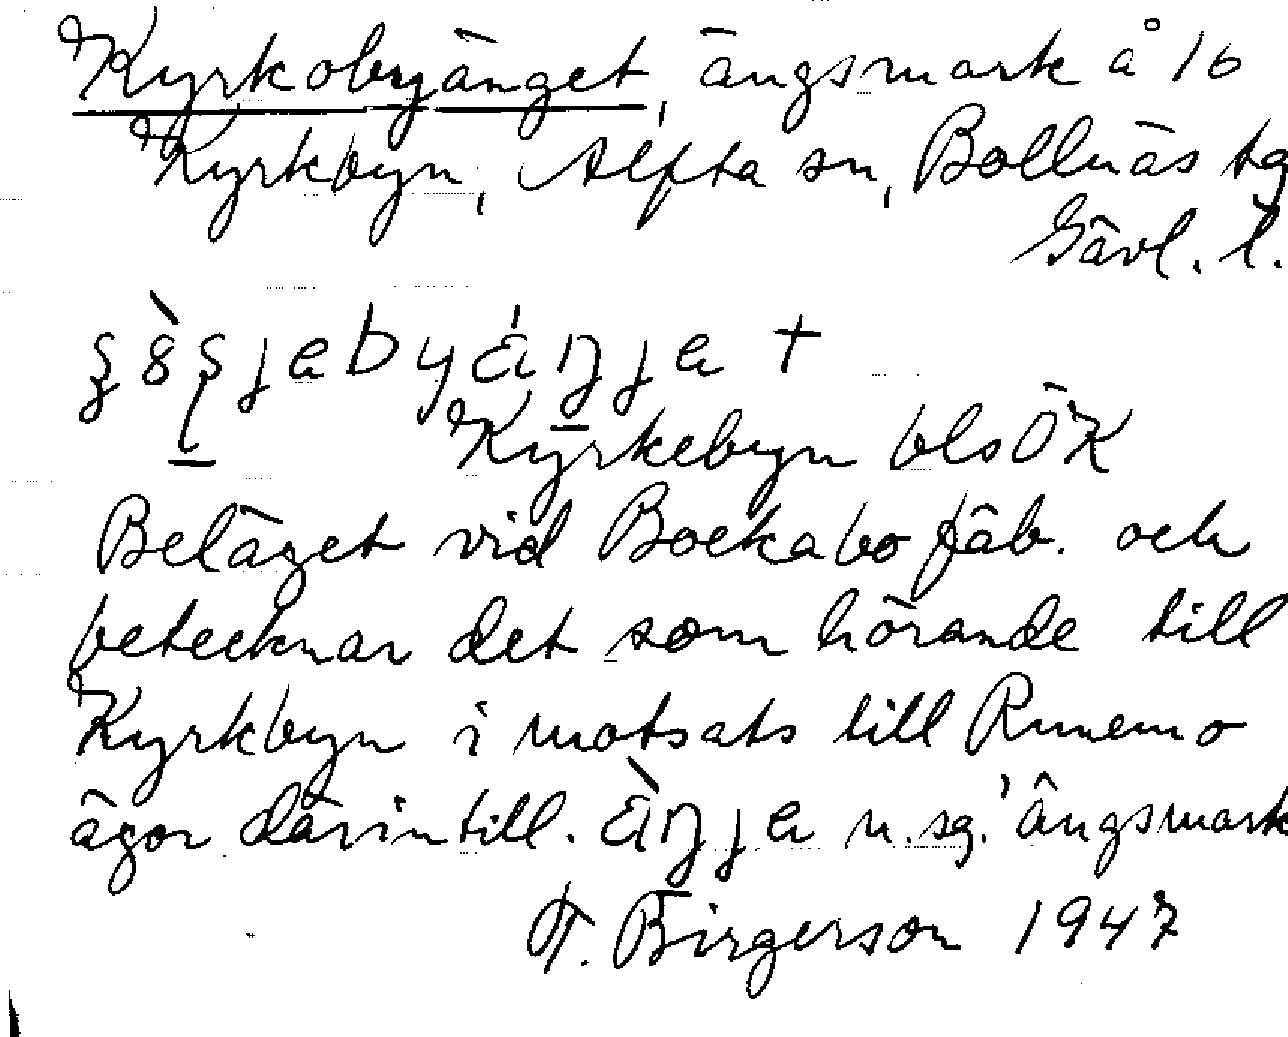 Kyrkobyänget, ängsmark å 16
Kyrkbyn, Alfta sn, Bollnäs tg
Gävl. l.
Kyrkebyn bls ÖK
Beläget vid Bockabo fäb. och
betecknar det som hörande till
Kyrkbyn i motsats till Runemo
ägor därintill. n.sg. 'ängsmark
T. Birgerson 1947